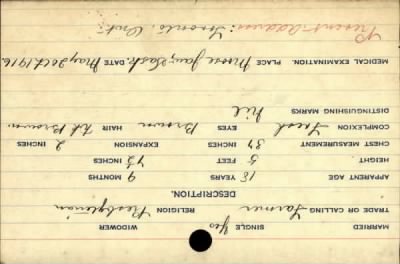 MARRIED SINGLE Yes WIDOWER
TRADE OR CALLING Farmer RELIGION Presbyterian
DESCRIPTION.
APPARENT AGE 18 YEARS 9 MONTHS
HEIGHT 5 FEET 7½ INCHES
CHEST MEASUREMENT 34 INCHES EXPANSION 2 INCHES
COMPLEXION Fresh EYES Brown HAIR Brown
DISTINGUISHING MARKS Nil
MEDICAL EXAMINATION. PLACE Moose Jaw, Sask. DATE May 20th 1916
Present Address: Toronto, Ont.